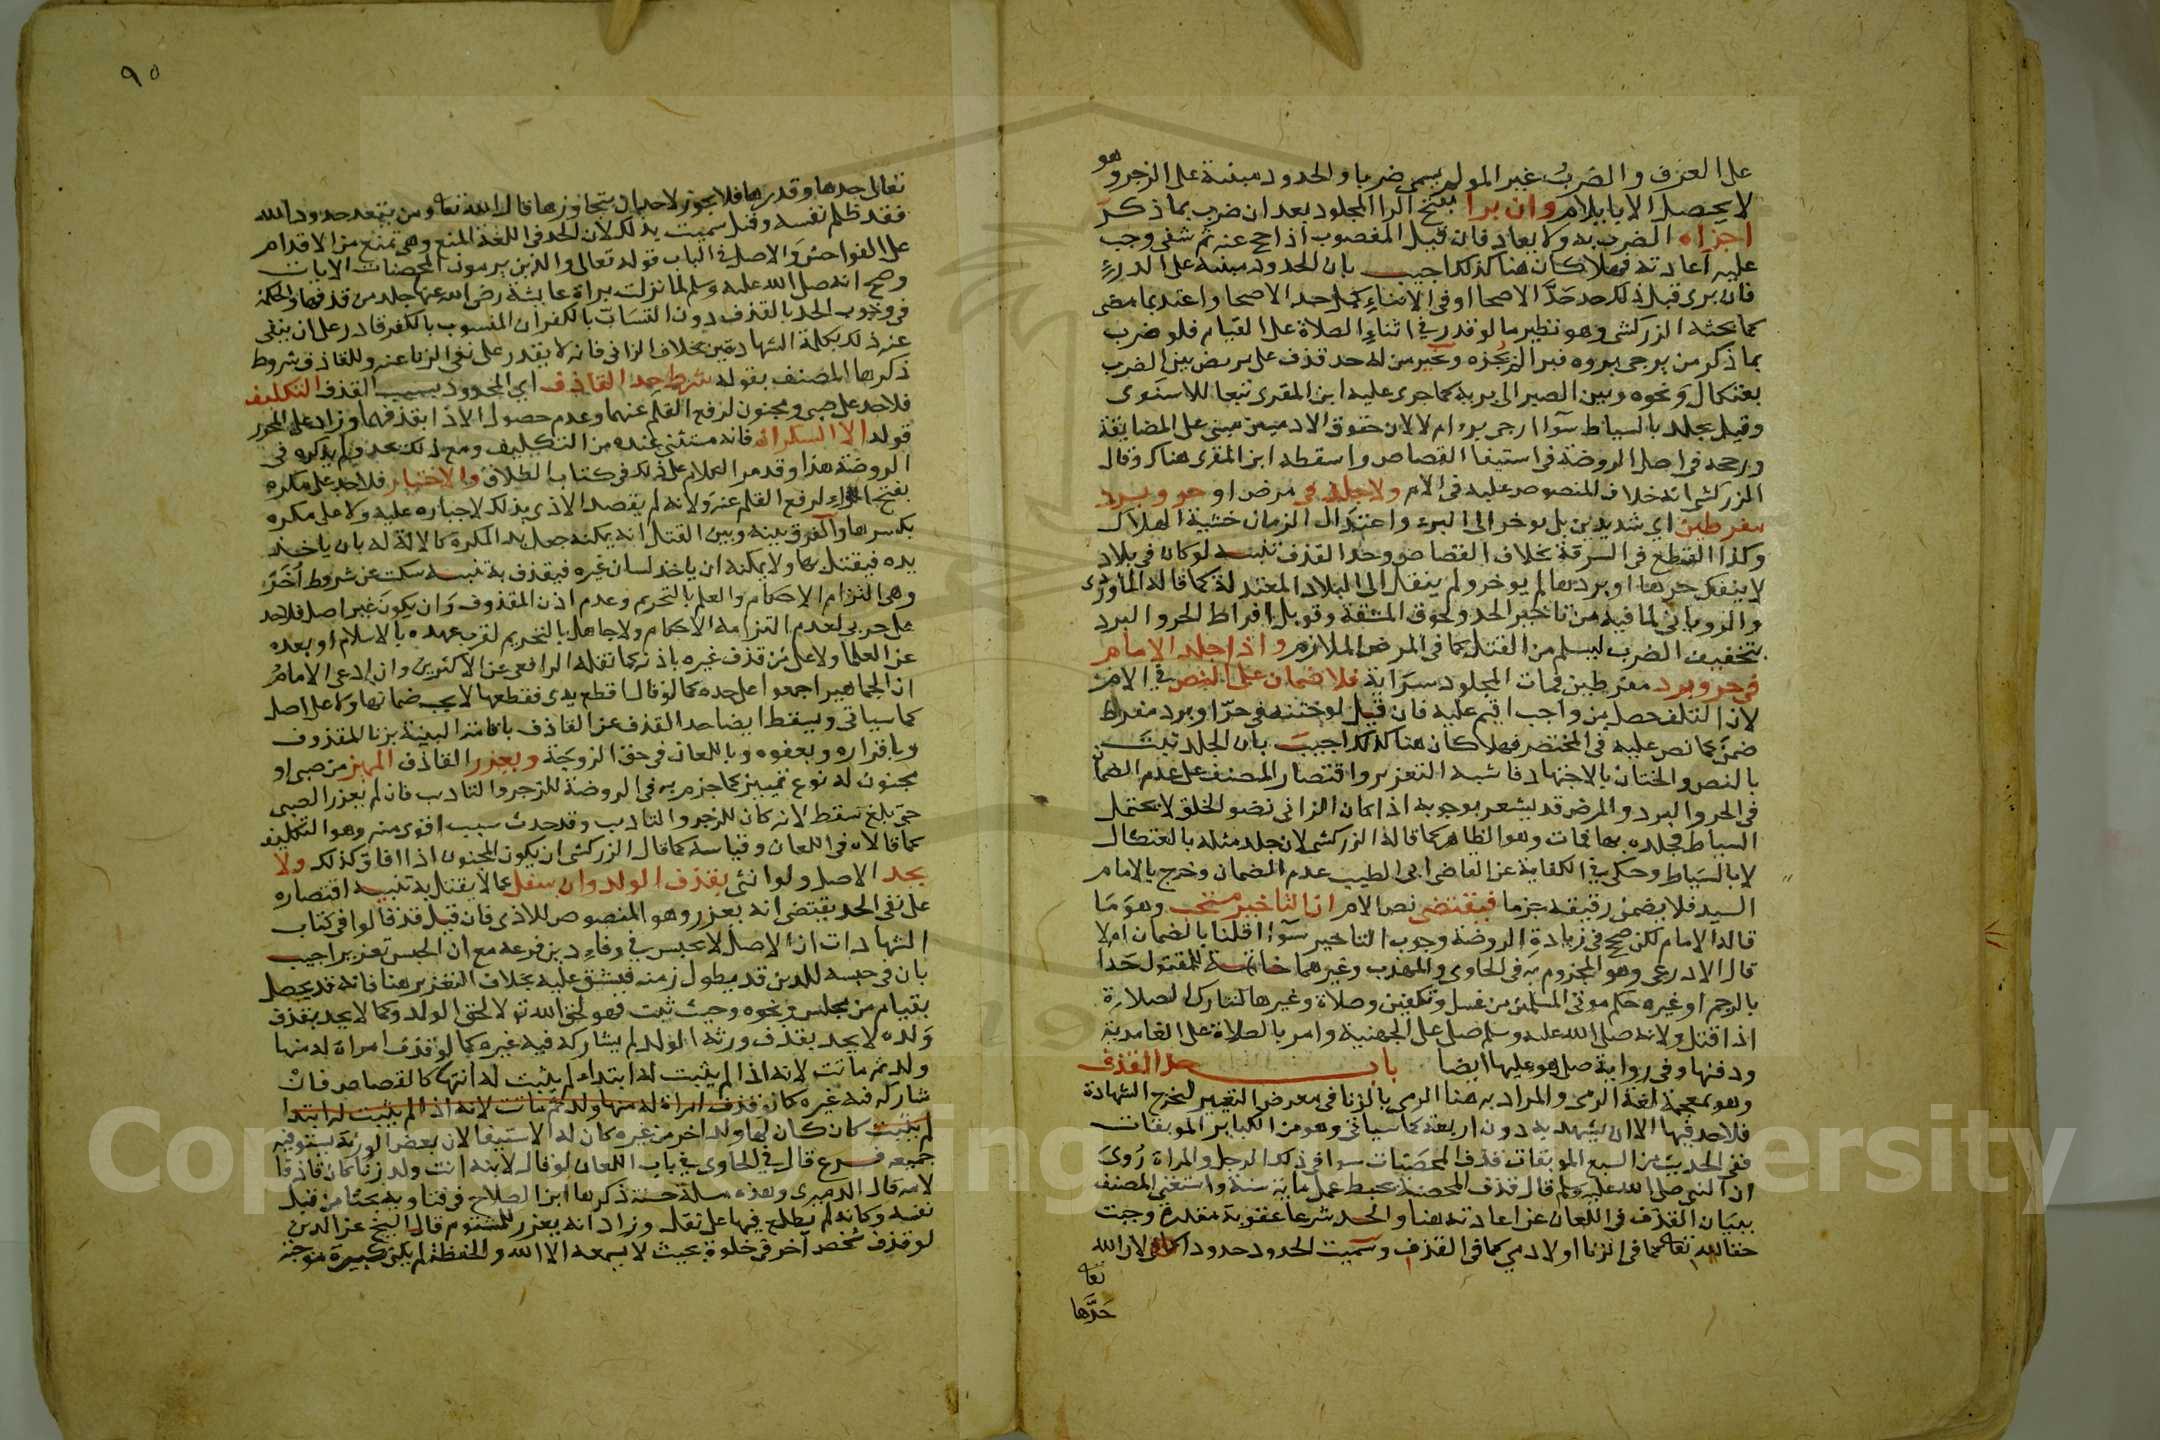 على العرف والضرب غير المولم يسمى ضربا والحدود مبنية على الزجر وهو
لا يحصل الا بايلام وان برا بفتح الرا المجلود بعد ان ضرب بما ذكر
اجزاه الضرب به ولا يعاد فان قيل المغصوب اذا حج عنه ثم شفي وجب
عليه اعادته فهلا كان هنا كذلك اجيب بان الحدود مبنية على الدرء
فان برى قبل ذلك حد حد الاصحا او في الاثناء كمل حد الاصحا واعتد بما مضى
كما بحثه الزركشي وهو نظير ما لو قدر في اثناء الصلاة على القيام فلو ضرب
بما ذكر من يرجى بروه فبرا لم يجزه وخير من له حد قذف على مريض بين الضرب
بعثكال ونحوه وبين الصبر الى بريه كما جرى عليه ابن المقرى تبعا للاسنوى
وقيل يجلد بالسياط سوا ارجى برء ام لا لان حقوق الادميين مبنى على المضايقة
ورجحه في اصل الروضة في استيفا القصاص واسقطه ابن المقرى هناك وقال
الزركشي انه خلاف المنصوص عليه في الام ولا جلد في مرض او حر وبرد
مفرطين اي شديدين بل يوخر الى البرء واعتدال الزمان خشية الهلاك
وكذا القطع في السرقة بخلاف القصاص وحد القذف تنبيه لو كان في بلاد
لا ينفك حرها او بردها لم يوخر ولم ينقل الى البلاد المعتدلة كما قاله الماوردى
والروياني لما فيه من تاخير الحد ولحوق المشقة وقوبل افراط الحر والبرد
بتخفيف الضرب ليسلم من القتل كما في المرض الملازم واذا جلد الامام
في حر وبرد مفرطين فمات المجلود سراية فلا ضمان على النص في الام
لان التلف حصل من واجب اقيم عليه فان قيل لو ختنه في حر او برد مفرط
ضمن كما نص عليه في المختصر فهلا كان هنا كذلك اجيب بان الجلد ثبت
بالنص والختان بالاجتهاد فاشبه التعزير واقتصار المصنف على عدم الضمان
في الحر والبرد والمرض قد يشعر بوجوبه اذا كان الزاني نضو الخلق لا يحتمل
السياط فجلده بها فمات وهو الظاهر كما قاله الزركشي لان جلد مثله بالعثكال
لا بالسياط وحكي في الكفاية عن القاضي ابي الطيب عدم الضمان وخرج بالامام
السيد فلا يضمن رقيقه جزما فيقتضي نص الام ان التاخير مستحب وهو ما
قاله الامام لكن صح في زيادة الروضة وجوب التاخير سوا اقلنا بالضمان ام لا
قال الاذرعى وهو المجزوم به في الحاوى والمهذب وغيرهما خاتمة للمقتول حدا
بالرجم او غيره حكم موتى المسلمين من غسل وتكفين وصلاة وغيرها كتارك الصلاة
اذا قتل ولانه صلى الله عليه وسلم صلى على الجهنية وامر بالصلاة على الغامدية
ودفنها وفي رواية صلى هو عليها ايضا باب حد القذف
وهو بمعجمة لغة الرمى والمراد به هنا الرمى بالزنا في معرض التعيير ليخرج الشهادة
فلا حد فيها الا ان يشهد به دون اربعة كما سياتي وهو من الكباير الموبقات
ففي الحديث من السبع الموبقات قذف المحصنات سوا في ذلك الرجل والمراة روى
ان النبي صلى الله عليه وسلم قال قذف المحصنة يحبط عمل ماية سنة واستغنى المصنف
ببيان القذف في اللعان عن اعادته هنا والحد شرعا عقوبة مقدرة وجبت
حقا لله تعالى كما في الزنا او لادمي كما في القذف وسميت الحدود حدودا لان الله
تعالى
حدها
٩٥
تعالى حدها وقدرها فلا يجوز لاحد ان يتجاوزها قال الله تعالى ومن يتعد حدود الله
فقد ظلم نفسه وقيل سميت بذلك لان الحد في اللغة المنع وهي تمنع من الاقدام
على الفواحش والاصل في الباب قوله تعالى والذين يرمون المحصنات الايات
وصح انه صلى الله عليه وسلم لما نزلت براة عايشة رضى الله عنها جلد من قذفها والحكمة
في وجوب الحد بالقذف دون التساب بالكفر ان المنسوب بالكفر قادر على ان ينفي
عنه ذلك بكلمة الشهادتين بخلاف الزاني فانه لا يقدر على نفى الزنا عنه وللقاذف شروط
ذكرها المصنف بقوله شرط حد القاذف اي المحدود بسبب القذف التكليف
فلا حد على صبى ومجنون لرفع القلم عنهما وعدم حصول الاذا بقذفهما وزاد على المحرر
قوله الا السكران فانه مستثنى عنده من التكليف ومع ذلك يحد ولم يذكره في
الروضة هذا وقد مر الكلام على ذلك في كتاب الطلاق والاختيار فلا حد على مكره
بفتح الراء لرفع القلم عنه ولانه لم يقصد الاذى بذلك لاجباره عليه ولا على مكره
بكسرها والفرق بينه وبين القتل انه يمكنه جعل يد المكره كالالة له بان ياخذ
يده فيقتل بها ولا يمكنه ان ياخذ لسان غيره فيقذف به تنبيه سكت عن شروط اخر
وهى التزام الاحكام والعلم بالتحريم وعدم اذن المقذوف وان يكون غير اصل فلا حد
على حربي لعدم التزامه الاحكام ولا جاهل بالتحريم لقرب عهده بالاسلام او بعده
عن العلما ولا على من قذف غيره باذنه كما نقله الرافعي عن الاكثرين وان ادعى الامام
ان الجماهير اجمعوا على حده كما لو قال اقطع يدي فقطعها لا يجب ضمانها ولا على اصل
كما سياتي ويسقط ايضا حد القذف عن القاذف باقامة البينة بزنا المقذوف
وباقراره وبعفوه وباللعان في حق الزوجة ويعزر القاذف المميز من صبى او
مجنون له نوع تمييز كما جزم به في الروضة للزجر والتاديب فان لم يعزر الصبى
حتى بلغ سقط لانه كان للزجر والتاديب وقد حدث سبب اقوى منه وهو التكليف
كما قالاه في اللعان وقياسه كما قال الزركشي ان يكون المجنون اذا افاق كذلك ولا
يحد الاصل ولو انثى بقذف الولد وان سفل كما لا يقتل به تنبيه اقتصاره
على نفى الحد يقتضى انه يعزر وهو المنصوص للاذى فان قيل قد قالوا في كتاب
الشهادات ان الاصل لا يحبس في وفاء دين فرعه مع ان الحبس تعزير اجيب
بان في حبسه للدين قد يطول زمنه فيشق عليه بخلاف التعزير هنا فانه قد يحصل
بقيام من مجلس ونحوه وحيث ثبت فهو لحق الله تعالى لا لحق الولد وكما لا يحد بقذف
ولده لا يحد بقذف ورثه الولد لم يشاركه فيه غيره كما لو قذف امراة له منها
ولد ثم ماتت لانه اذا لم يثبت له ابتداء لم يثبت له انتها كالقصاص فان
شاركه فيه غيره كان قذف امراة له منها ولد ثم ماتت لانه اذا لم يثبت له ابتدا
لم يثبت كان كان لها ولد اخر من غيره كان له الاستيفا لان بعض الورثة يستوفيه
جميعه فرع قال في الحاوى في باب اللعان لو قال لابنه انت ولد زنا كان قاذفا
لامه قال الدميري وهذه مسلة حسنة ذكرها ابن الصلاح في فتاويه بحثا من قبل
نفسه وكانه لم يطلع فيها على نقل وزاد انه يعزر للمشتوم قال الشيخ عز الدين
لو قذف شخص آخر في خلوة بحيث لا يسمعه الا الله والحفظة لم يكن كبيرة موجبة